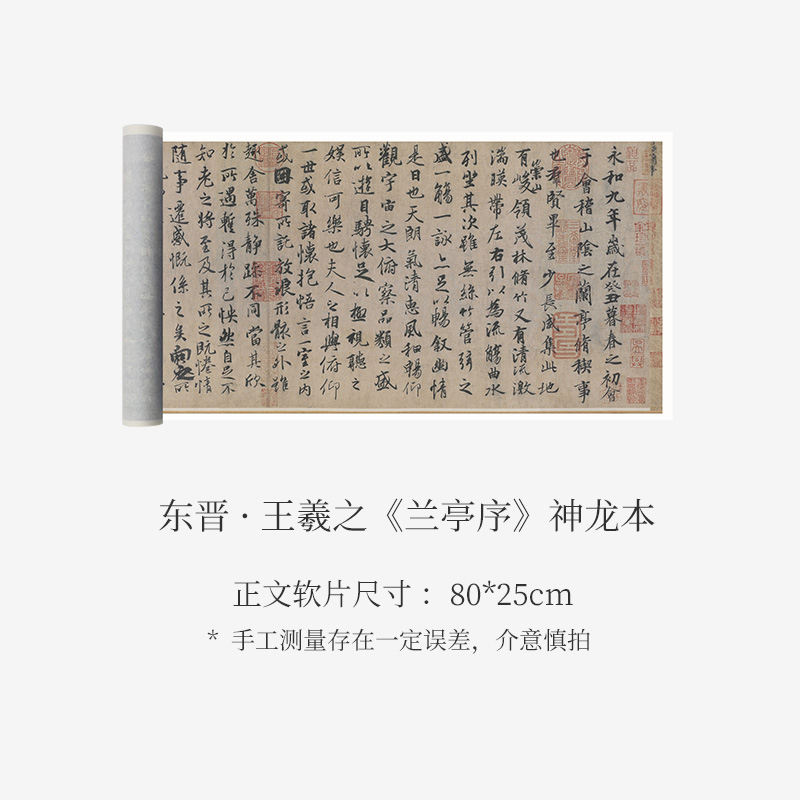 永和九年歲在癸丑暮春之初會
于會稽山陰之蘭亭脩稧事
也羣賢畢至少長咸集此地
有崇山峻領茂林脩竹又有清流激
湍暎帶左右引以為流觴曲水
列坐其次雖無絲竹管弦之
盛一觴一詠亦足以暢叙幽情
是日也天朗氣清惠風和暢仰
觀宇宙之大俯察品類之盛
所以遊目騁懷足以極視聽之
娛信可樂也夫人之相與俯仰
一世或取諸懷抱悟言一室之內
或因寄所託放浪形骸之外雖
趣舍萬殊静躁不同當其欣
於所遇暫得於己怏然自足不
知老之將至及其所之既惓情
隨事遷感慨係之矣向之所
东晋·王羲之《兰亭序》神龙本
正文软片尺寸：80*25cm
* 手工测量存在一定误差，介意慎拍